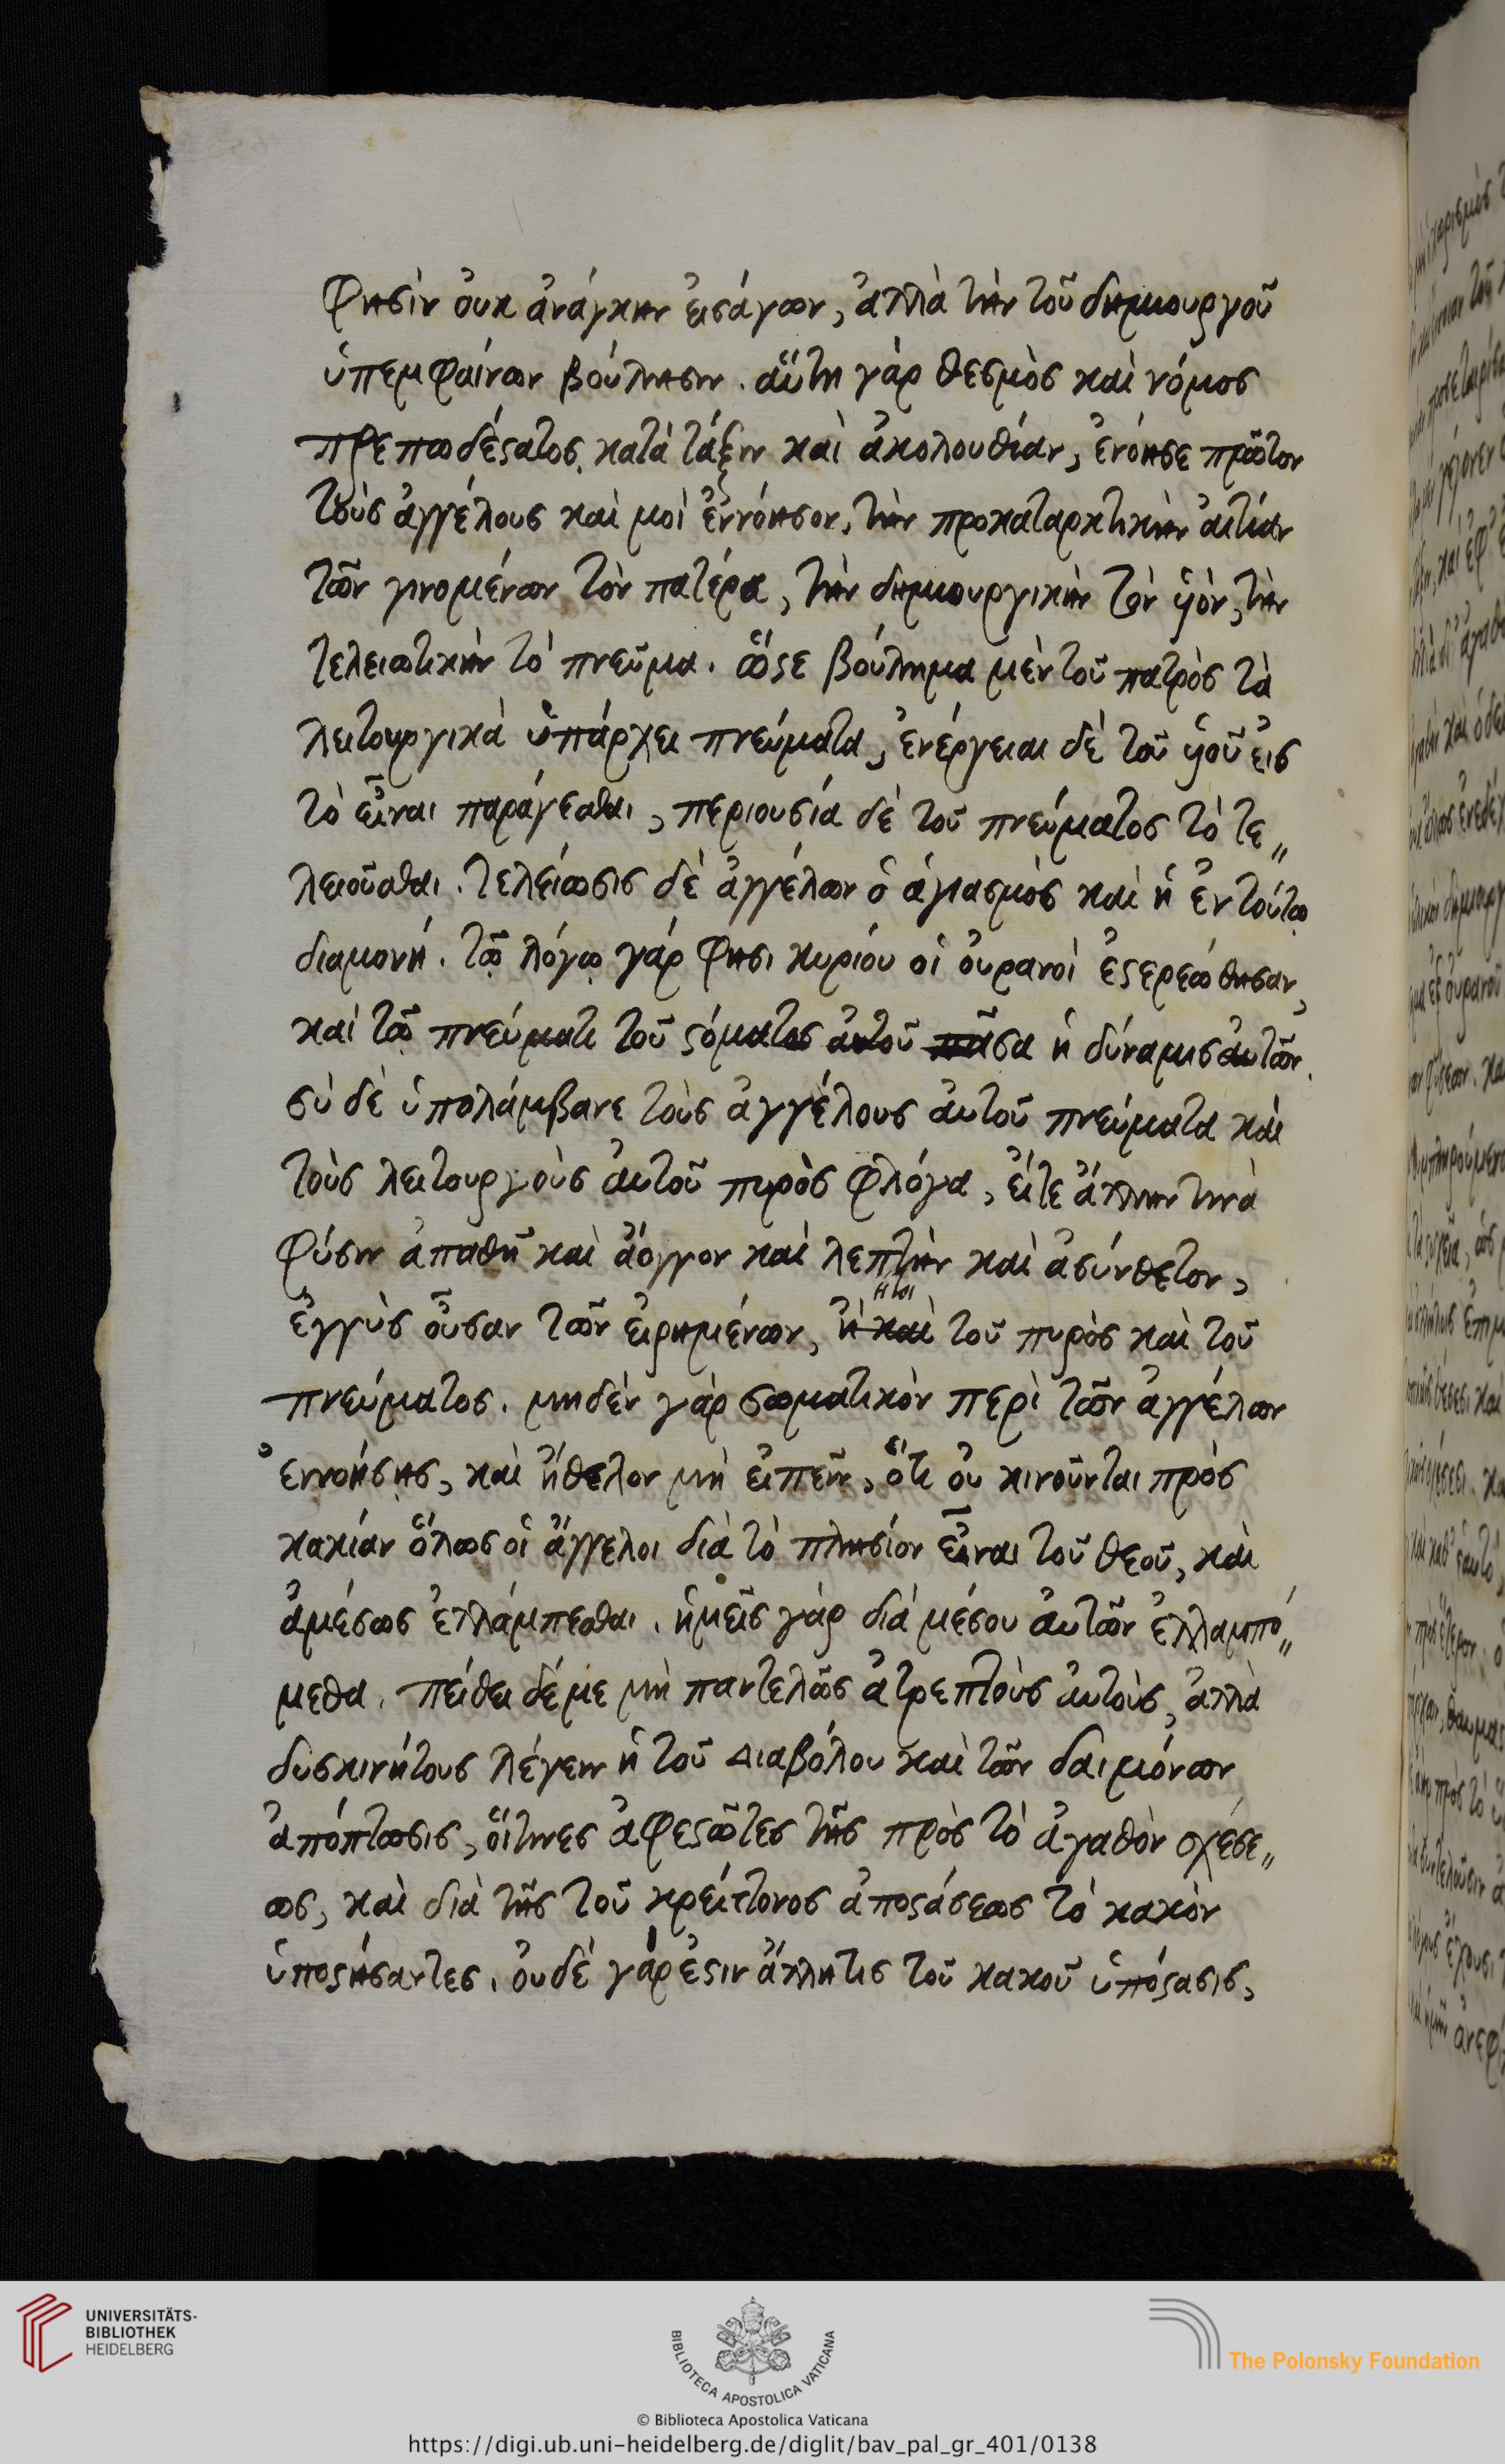 φησὶν οὐκ ἀνάγκην εἰσάγων, ἀλλὰ τὴν τοῦ δημιουργοῦ
ὑπεμφαίνων βούλησιν. αὕτη γάρ θεσμὸς καὶ νόμος
πρεπωδέστατος. κατὰ τάξιν καὶ ἀκολουθίαν, ἐνόησε πρῶτον
τοὺς ἀγγέλους καὶ μοὶ ἐννόησον, τὴν προκαταρκτικὴν ἀιτίαν
τῶν γινομένων τὸν πατέρα, τὴν δημιουργικὴν τὸν ὑϊὸν, τὴν
τελειωτικὴν τὸ πνεῦμα. ὥστε βούλημα μὲν τοῦ πατρὸς τὰ
λειτουργικὰ ὑπάρχει πνεύματα, ἐνέργειαι δὲ τοῦ ὑϊοῦ εἰς
τὸ εἶναι παράγεσθαι, περιουσία δὲ τοῦ πνεύματος τὸ τε〃
λειοῦσθαι. τελείωσις δὲ ἀγγέλων ὁ ἁγιασμὸς καὶ ἡ ἐν τούτῳ
διαμονή. τῷ λόγῳ γάρ φησι κυρίου οἱ οὐρανοὶ ἐστερεώθησαν,
καὶ τῷ πνεύματι τοῦ στόματος αὐτοῦ πᾶσα ἡ δύναμις αὐτῶν.
σὺ δὲ ὑπολάμβανε τοὺς ἀγγέλους αὐτοῦ πνεύματα καὶ
τοὺς λειτουργοὺς αὐτοῦ πυρὸς φλόγα, εἴτε ἄλλην τινὰ
φύσιν ἀπαθῆ καὶ ἄογγον καὶ λεπτὴν καὶ ἀσύνθετον,
ἤτοι
ἐγγὺς οὖσαν τῶν εἰρημένων, ἢ καὶ τοῦ πυρὸς καὶ τοῦ
πνεύματος. μηδὲν γὰρ σωματικὸν περὶ τῶν ἀγγέλων
ἐννοήσῃς, καὶ ἤθελον μὴ εἰπεῖν, ὅτι οὐ κινοῦνται πρὸς
κακίαν ὅλως οἱ ἄγγελοι διὰ τὸ πλησίον εἶναι τοῦ θεοῦ, καὶ
ἀμέσως ἐλλάμπεσθαι. ἡμεῖς γὰρ διὰ μέσου αὐτῶν ἐλλαμπό〃
μεθα. πείθει δέ με μὴ παντελῶς ἀτρεπτοὺς αὐτοὺς, ἀλλὰ
δυσκινήτους λέγειν ἡ τοῦ διαβόλου καὶ τῶν δαιμόνων
ἀπόπτωσις, οἵτινες ἀφεστῶτες τῆς πρὸς τὸ ἀγαθὸν σχέσε〃
ως, καὶ διὰ τῆς τοῦ κρείττονος ἀποστάσεως τὸ κακὸν
ὑποστήσαντες. οὐδὲ γάρ ἐστιν ἄλλη τις τοῦ κακοῦ ὑπόστασις,
UNIVERSITÄTS-
BIBLIOTHEK
HEIDELBERG
BIBLIOTECA APOSTOLICA VATICANA
The Polonsky Foundation
© Biblioteca Apostolica Vaticana
https://digi.ub.uni-heidelberg.de/diglit/bav_pal_gr_401/0138